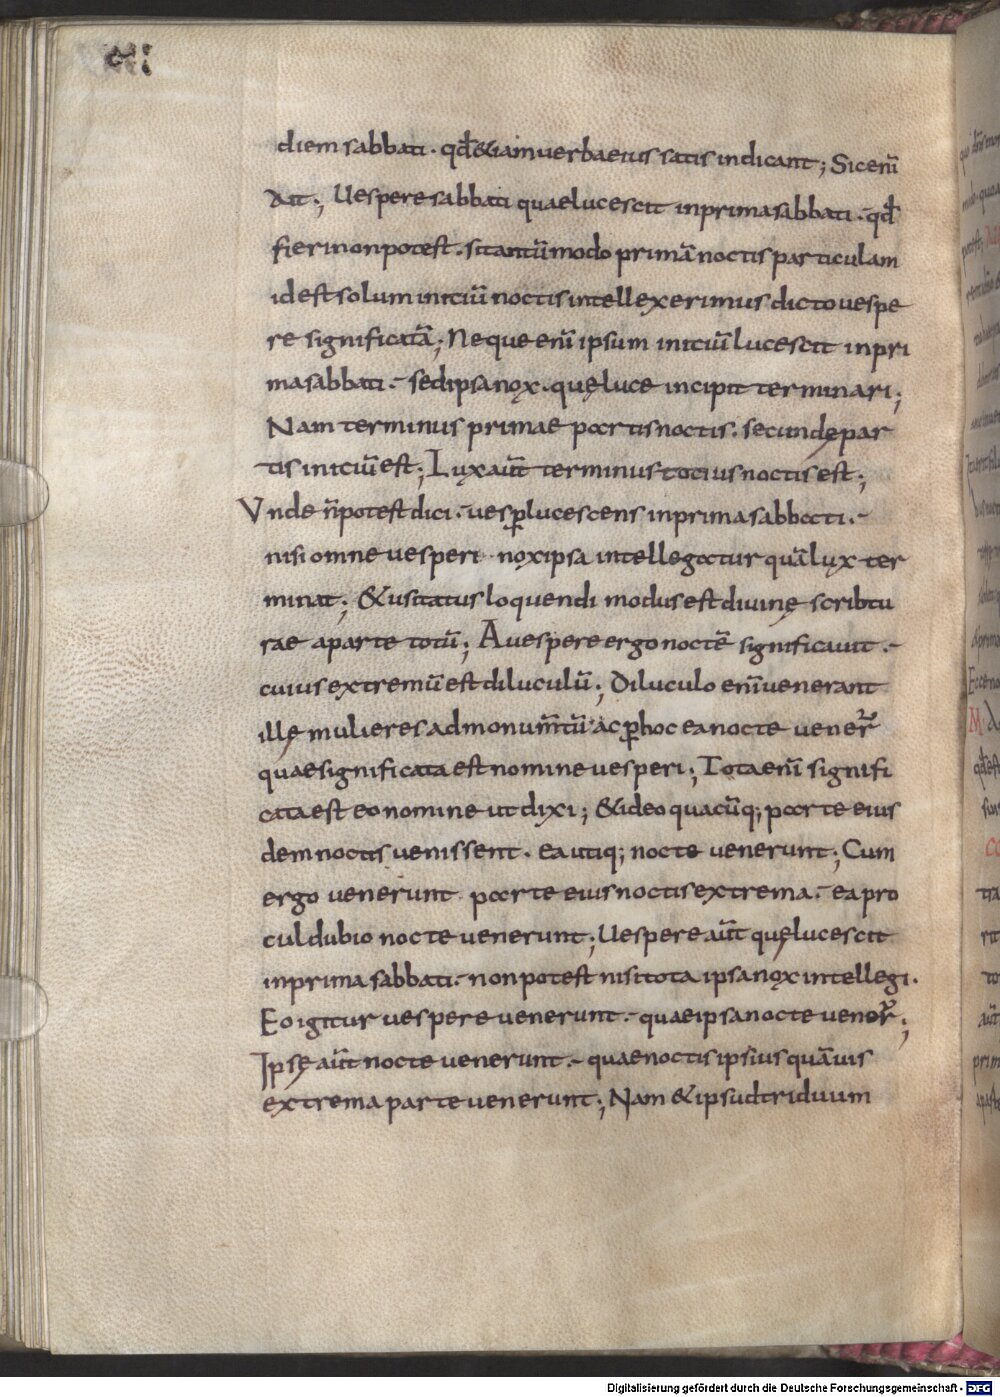 diem sabbati · qd̄ &iam uerba eius satis indicant ; Sic eni̅
ait ; Uespere sabbati quae lucescit in prima sabbati · qd̄
fieri non potest · si tantu̅ modo prima̅ noctis particulam
id est solum initiu̅ noctis intellexerimus dicto uespe
re significata̅ ; Neque eni̅ ipsum initiu̅ lucescit in pri
ma sabbati · sed ipsa nox · quę luce incipit terminari ;
Nam terminus primae partis noctis · secundę par
tis initiu̅ est ; Lux aut̅ terminus totius noctis est ;
Unde n̅ potest dici · uesp̱ lucescens in prima sabbati ·
nisi omne uesperi nox ipsa intellegatur qua̅ lux ter
minat ; & usitatus loquendi modus est diuinę scribtu
rae a parte totu̅ ; A uespere ergo nocte̅ significauit ·
cuius extremu̅ est diluculu̅ ; Diluculo eni̅ uenerant
illę mulieres ad monum̅tu̅ ac p̱hoc ea nocte uener̅
quae significata est nomine uesperi ; Tota eni̅ signifi
cata est eo nomine ut dixi ; & ideo quacu̅q; parte eius
dem noctis uenissent · ea utiq; nocte uenerunt ; Cum
ergo uenerunt parte eius noctis extrema · ea pro
cul dubio nocte uenerunt ; Uespere aut̅ quę lucescit
in prima sabbati · non potest nisi tota ipsa nox intellegi ·
Eo igitur uespere uenerunt · quae ipsa nocte uener̅ ;
Ipsę aut̅ nocte uenerunt · quae noctis ipsius qua̅uis
extrema parte uenerunt ; Nam & ipsud triduum
Digitalisierung gefördert durch die Deutsche Forschungsgemeinschaft - DFG